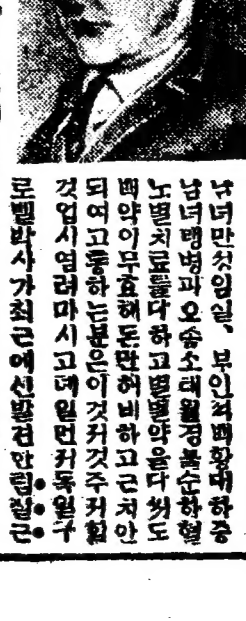 남녀만성임질、부인적백황대하증
남녀냉병과오줌소태월경불순하혈
노별치료를다하고별별약을다써도
백약이무효해돈만허비하고근치안
되여고통하는분은이것저것주저할
것업시염려마시고데일먼저독일구
로벨박사가최근에신발견한림질근